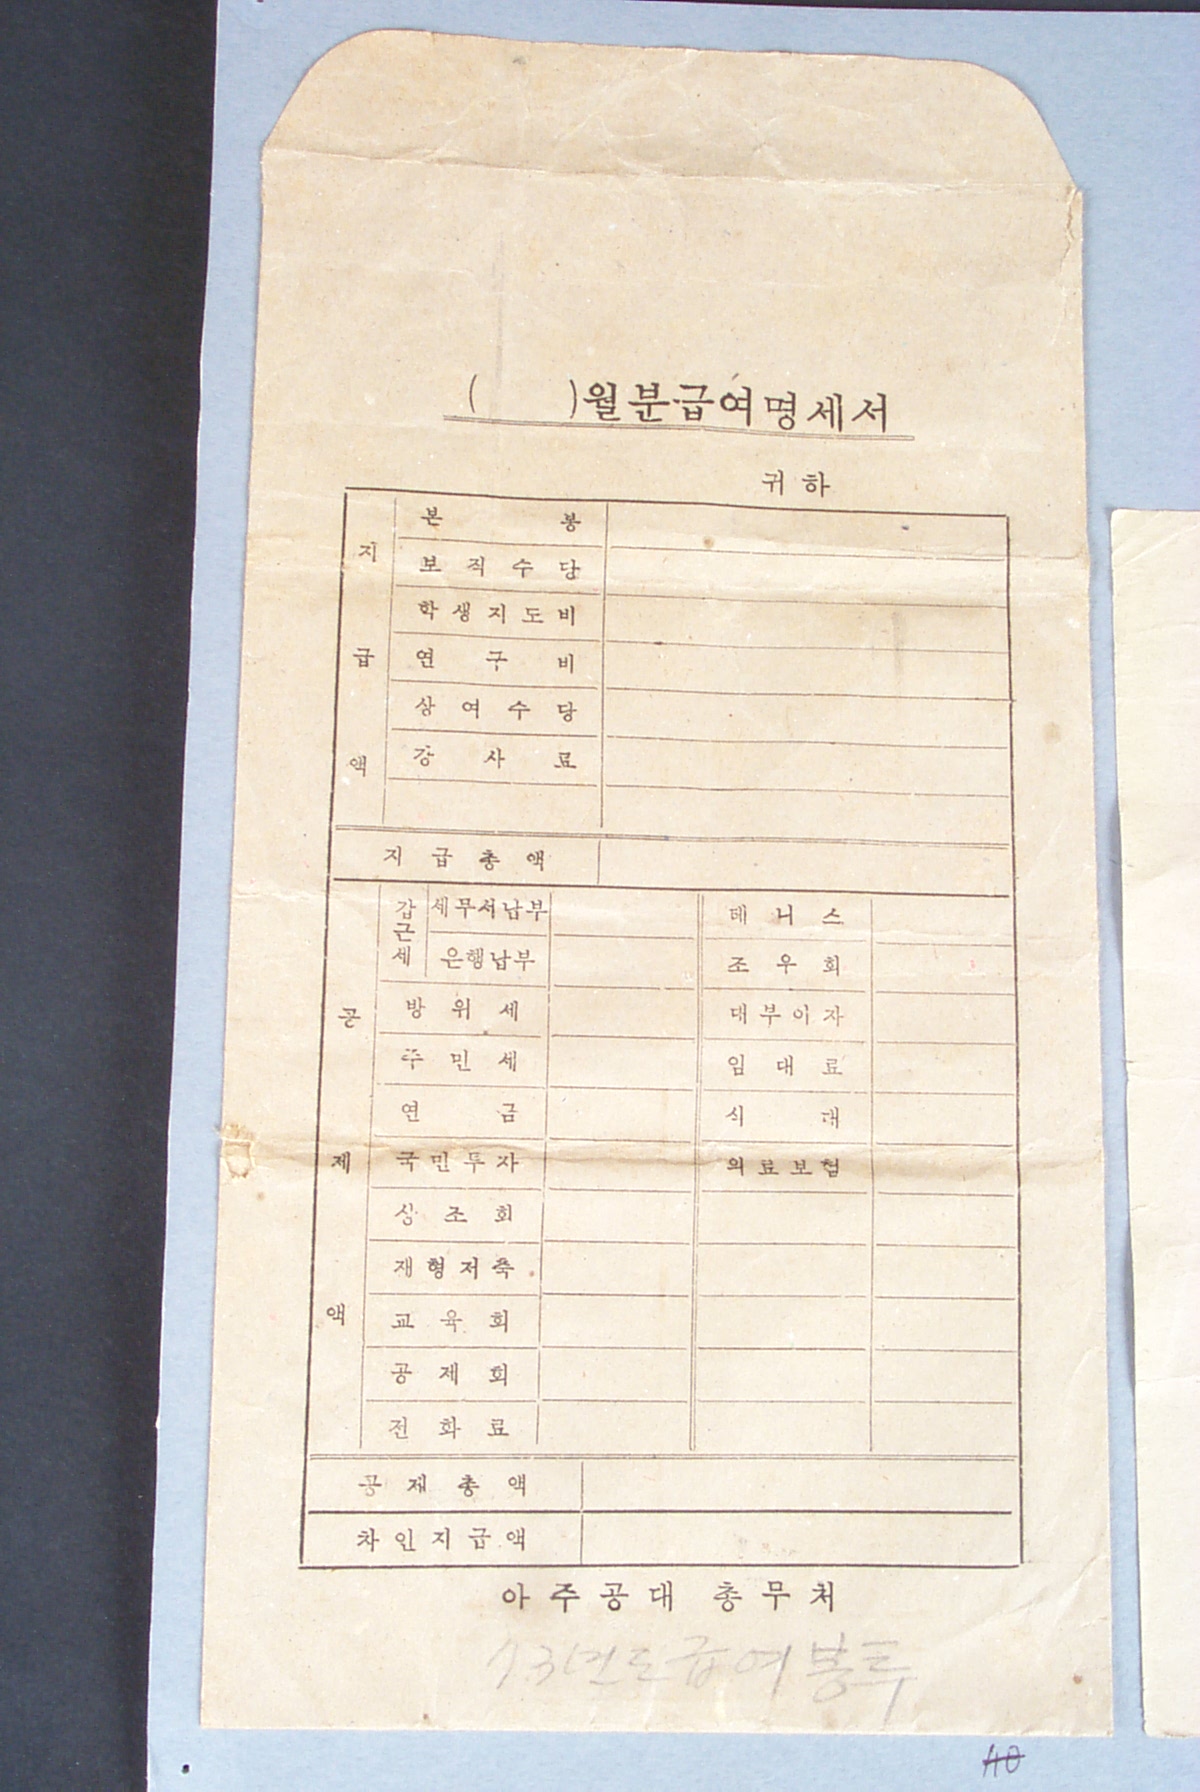 (    )월분급여명세서
귀하
지급액
본봉
보직수당
학생지도비
연구비
상여수당
강사료
지급총액
공제액
갑근세
세무서납부
은행납부
방위세
주민세
연금
국민투자
상조회
재형저축
교육회
공제회
전화료
테니스
조우회
대부이자
임대료
식대
의료보험
공제총액
차인지급액
아주공대 총무처
73년도급여봉투